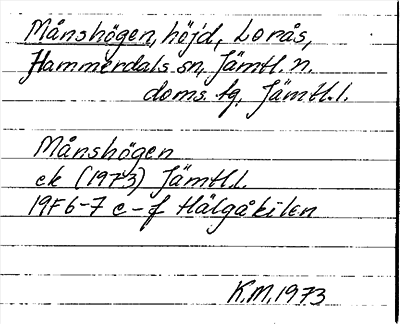 Månshögen, höjd, Lorås,
Hammerdals sn, Jämtl. n.
doms. tg, Jämtl. l.
Månshögen
ek (1973) Jämtl. l.
19F 6-7 e-f Hälgåkilen
K.M. 1973